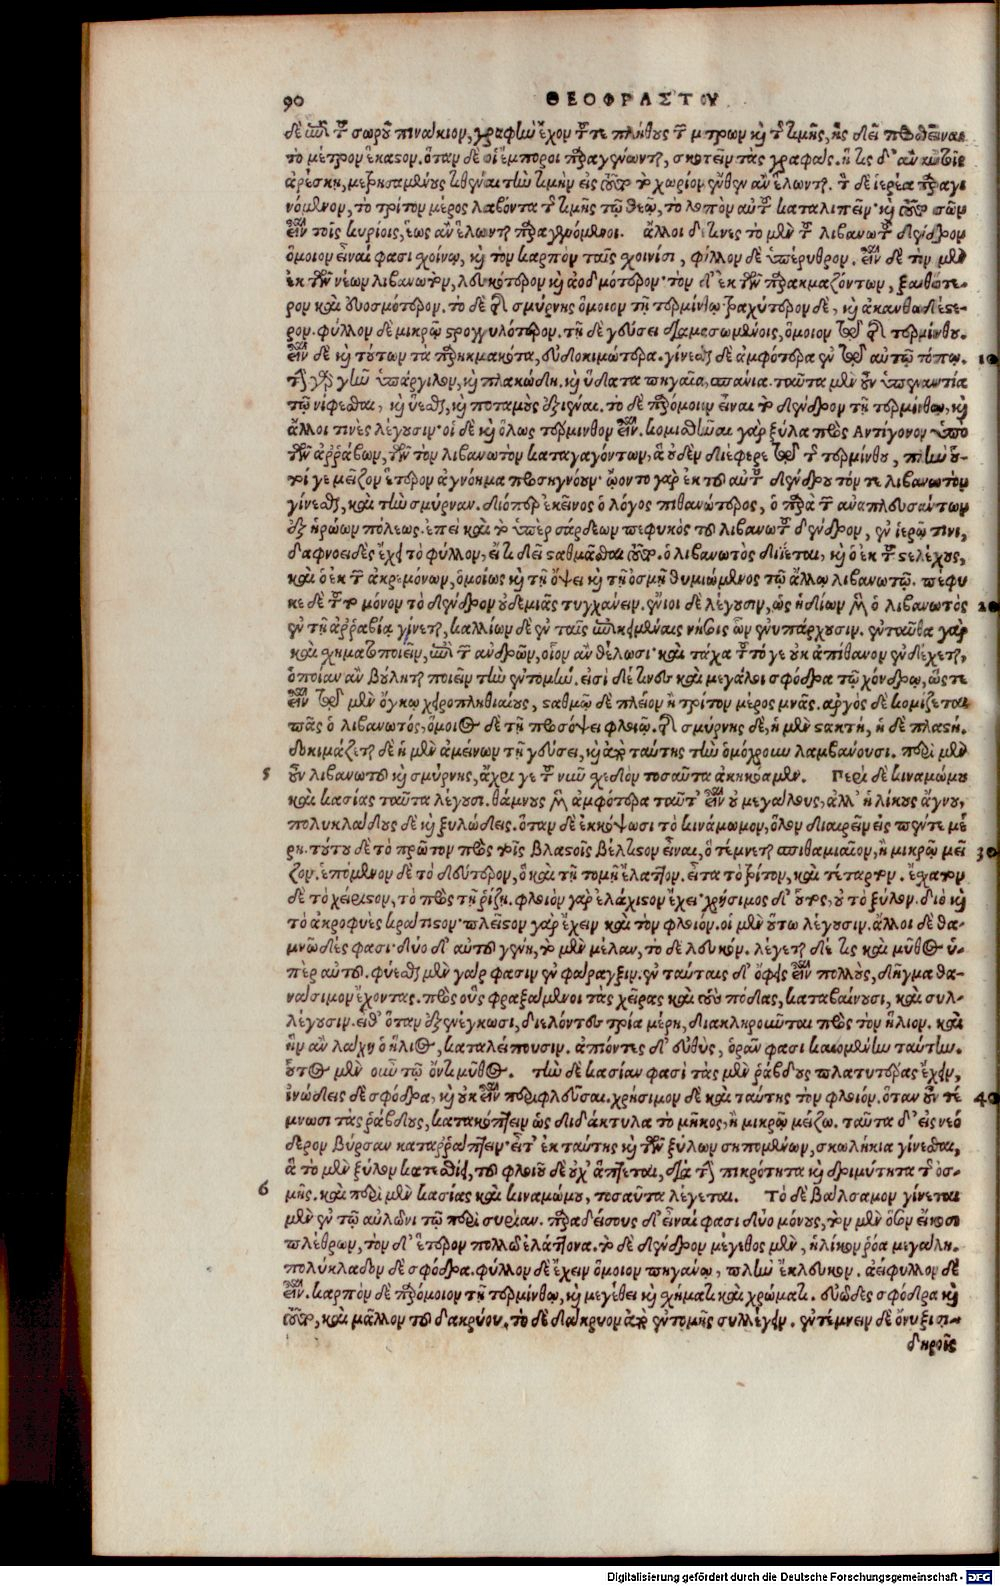 90 ΘΕΟΦΡΑΣΤΟΥ
δὲ ἐπὶ τοῦ σωροῦ πινάκιον, γραφὴν ἔχον τοῦ τε πλήθους τῶν μέτρων καὶ τῆς τιμῆς, ἧς δεῖ πραθῆναι
τὸ μέτρον ἕκαστον. ὅταν δὲ οἱ ἔμποροι παραγένωνται, σκοπεῖν τὰς γραφάς. ἥτις δ' ἂν αὐτοῖς
ἀρέσκῃ, μετρησαμένους τιθέναι τὴν τιμὴν εἰς τοῦτο τὸ χωρίον ἔνθεν ἂν ἕλωνται. τὸν δὲ ἱερέα παραγε
νόμενον, τὸ τρίτον μέρος λαβόντα τῆς τιμῆς τῷ θεῷ, τὸ λοιπὸν αὐτοῦ καταλιπεῖν· καὶ τοῦτο σῶν
εἶναι τοῖς κυρίοις, ἕως ἂν ἕλωνται παραγενόμενοι. ἄλλοι δέ τινες τὸ μὲν τοῦ λιβανωτοῦ δένδρον
ὅμοιον εἶναί φασι σχοίνῳ, καὶ τὸν καρπὸν ταῖς σχοινίσι, φύλλον δὲ ὑπέρυθρον. εἶναι δὲ τὸν μὲν
ἐκ τῶν νέων λιβανωτὸν, λευκότερον καὶ ἀοδμότερον· τὸν δ' ἐκ τῶν παρακμαζόντων, ξανθότε-
ρον καὶ εὐοσμότερον. τὸ δὲ τῆς σμύρνης ὅμοιον τῇ τερμίνθῳ· τραχύτερον δὲ, καὶ ἀκανθωδέστε-
ρον. φύλλον δὲ μικρῷ στρογγυλότερον. τῇ δὲ γεύσει διαμασωμένοις, ὅμοιον τῷ τῆς τερμίνθου.
εἶναι δὲ καὶ τούτων τὰ παρηκμακότα, εὐδοκιμώτερα. γίνεσθαι δὲ ἀμφότερα ἐν τῷ αὐτῷ τόπῳ. 10
τὴν γῆν ὑπάργιλον, καὶ πλακώδη. καὶ ὕδατα πηγαῖα, σπάνια. ταῦτα μὲν οὖν ὑπεναντία
τῷ νίφεσθαι, καὶ ὕεσθαι, καὶ ποταμοὺς ἐξιέναι. τὸ δὲ παρόμοιον εἶναι τὸ δένδρον τῇ τερμίνθῳ, καὶ
ἄλλοι τινὲς λέγουσιν· οἱ δὲ καὶ ὅλως τέρμινθον εἶναι. κομισθῆναι γὰρ ξύλα πρὸς Ἀντίγονον ὑπὸ
τῶν ἀρράβων, τῶν τὸν λιβανωτὸν καταγαγόντων, ἃ οὐδὲν διέφερε τῶν τῆς τερμίνθου, πλὴν οὗ-
τοί γε μεῖζον ἕτερον ἀγνόημα προσηγνόουν· ᾤοντο γὰρ ἐκ τοῦ αὐτοῦ δένδρου τόν τε λιβανωτὸν
γίνεσθαι, καὶ τὴν σμύρναν. διόπερ ἐκεῖνος ὁ λόγος πιθανώτερος, ὁ παρὰ τῶν ἀναπλευσάντων
ἐξ ἡρώων πόλεως. ἐπεὶ καὶ τὸ ὑπὲρ σάρδεων πεφυκὸς τοῦ λιβανωτοῦ δένδρον, ἐν ἱερῷ τινι,
δαφνοειδὲς ἔχει τὸ φύλλον, εἴ τι δεῖ σταθμᾶσθαι τοῦτο. ὁ λιβανωτὸς δίεται, καὶ ὁ ἐκ τοῦ στελέχους,
καὶ ὁ ἐκ τῶν ἀκρεμόνων, ὁμοίως καὶ τῇ ὄψει καὶ τῇ ὀσμῇ θυμιώμενος τῷ ἄλλῳ λιβανωτῷ. πεφυ
κε δὲ τοῦτο μόνον τὸ δένδρον οὐδεμιᾶς τυγχάνειν. ἔνιοι δὲ λέγουσιν, ὡς ἡδίων μὲν ὁ λιβανωτὸς 20
ἐν τῇ ἀρραβίᾳ γίνεται, καλλίων δὲ ἐν ταῖς ἐπικειμέναις νήσοις ὧν ἐνυπάρχουσιν. ἐνταῦθα γὰρ
καὶ σχηματοποιεῖν, ἐπὶ τῶν δένδρων, οἷον ἂν θέλωσι· καὶ τάχα τοῦτό γε οὐκ ἀπίθανον ἐνδέχεται,
ὁποίαν ἂν βούληται ποιεῖν τὴν ἐντομήν. εἰσὶ δέ τινες καὶ μεγάλοι σφόδρα τῷ χόνδρῳ, ὥστε
εἶναι τῷ μὲν ὄγκῳ χειροπληθιαίους, σταθμῷ δὲ πλέον ἢ τρίτον μέρος μνᾶς. ἀργὸς δὲ κομίζεται
πᾶς ὁ λιβανωτός, ὅμοιος δὲ τῇ προσόψει φλοιῷ. τῆς σμύρνης δὲ, ἡ μὲν στακτή, ἡ δὲ πλαστή.
δοκιμάζεται δὲ ἡ μὲν ἀμείνων τῇ γεύσει, καὶ ἀπὸ ταύτης τὴν ὁμόχρουν λαμβάνουσι. περὶ μὲν
5 οὖν λιβανωτοῦ καὶ σμύρνης, ἄχρι γε τοῦ νῦν σχεδὸν τοσαῦτα ἀκηκόαμεν. Περὶ δὲ κιναμώμου
καὶ κασίας ταῦτα λέγουσι. θάμνους μὲν ἀμφότερα ταῦτ' εἶναι οὐ μεγάλους, ἀλλ' ἡλίκους ἄγνου,
πολυκλάδους δὲ καὶ ξυλώδεις. ὅταν δὲ ἐκκόψωσι τὸ κινάμωμον, ὅλον διαιρεῖν εἰς πέντε μέ
ρη. τούτου δὲ τὸ πρῶτον πρὸς τοῖς βλαστοῖς βέλτιστον εἶναι, ὃ τέμνεται σπιθαμιαῖον, ἢ μικρῷ μεῖ 30
ζον. ἑπόμενον δὲ τὸ δεύτερον, ὃ καὶ τῇ τομῇ ἔλαττον. εἶτα τὸ τρίτον, καὶ τέταρτον. ἔσχατον
δὲ τὸ χείριστον, τὸ πρὸς τῇ ῥίζῃ. φλοιὸν γὰρ ἐλάχιστον ἔχει· χρήσιμος δ' οὗτος, οὐ τὸ ξύλον. διὸ καὶ
τὸ ἀκροφυὲς κράτιστον· πλεῖστον γὰρ ἔχειν καὶ τὸν φλοιόν. οἱ μὲν οὕτω λέγουσιν. ἄλλοι δὲ θα-
μνῶδές φασι· δύο δ' αὐτοῦ γένη, τὸ μὲν μέλαν, τὸ δὲ λευκόν. λέγεται δέ τις καὶ μῦθος ὑ-
πὲρ αὐτοῦ. φύεσθαι μὲν γάρ φασιν ἐν φάραγξιν. ἐν ταύταις δ' ὄφεις εἶναι πολλοὺς, δῆγμα θα-
νάσιμον ἔχοντας. πρὸς οὓς φραξάμενοι τὰς χεῖρας καὶ τοὺς πόδας, καταβαίνουσι, καὶ συλ-
λέγουσιν. εἶθ' ὅταν ἐξενέγκωσι, διελόντες τρία μέρη, διακληροῦνται πρὸς τὸν ἥλιον. καὶ
ἣν ἂν λάχῃ ὁ ἥλιος, καταλείπουσιν. ἀπιόντες δ' εὐθὺς, ὁρᾶν φασι καιομένην ταύτην.
οὗτος μὲν οὖν τῷ ὄντι μῦθος. τὴν δὲ κασίαν φασὶ τὰς μὲν ῥάβδους πλατυτέρας ἔχειν,
ἰνώδεις δὲ σφόδρα, καὶ οὐκ εἶναι περιφλεῦσαι. χρήσιμον δὲ καὶ ταύτης τὸν φλοιόν. ὅταν οὖν τέ 40
μνωσι τὰς ῥάβδους, κατακόπτειν ὡς διδάκτυλα τὸ μῆκος, ἢ μικρῷ μείζω. ταῦτα δ' εἰς νεό
δερον βύρσαν καταρράπτειν· εἶτ' ἐκ ταύτης καὶ τῶν ξύλων σηπομένων, σκωλήκια γίνεσθαι,
ἃ τὸ μὲν ξύλον κατεσθίει, τοῦ φλοιοῦ δὲ οὐχ ἅπτεται, διὰ τὴν πικρότητα καὶ δριμύτητα τῆς ὀσ-
6 μῆς. καὶ περὶ μὲν κασίας καὶ κιναμώμου, τοσαῦτα λέγεται. Τὸ δὲ βάλσαμον γίνεται
μὲν ἐν τῷ αὐλῶνι τῷ περὶ συρίαν. παραδείσους δ' εἶναί φασι δύο μόνους, τὸν μὲν ὅσον εἴκοσι
πλέθρων, τὸν δ' ἕτερον πολλῷ ἐλάττονα. τὸ δὲ δένδρον μέγεθος μὲν, ἡλίκον ῥόα μεγάλη.
πολύκλαδον δὲ σφόδρα. φύλλον δὲ ἔχειν ὅμοιον πηγάνῳ, πλὴν ἔκλευκον. ἀείφυλλον δὲ
εἶναι. καρπὸν δὲ παρόμοιον τῇ τερμίνθῳ, καὶ μεγέθει καὶ σχήματι καὶ χρώματι. εὐῶδες σφόδρα καὶ
τοῦτο, καὶ μᾶλλον τοῦ δακρύου. τὸ δὲ δάκρυον ἀπὸ ἐντομῆς συλλέγειν. ἐντέμνειν δὲ ὄνυξι σι-
δηροῖς
Digitalisierung gefördert durch die Deutsche Forschungsgemeinschaft - DFG